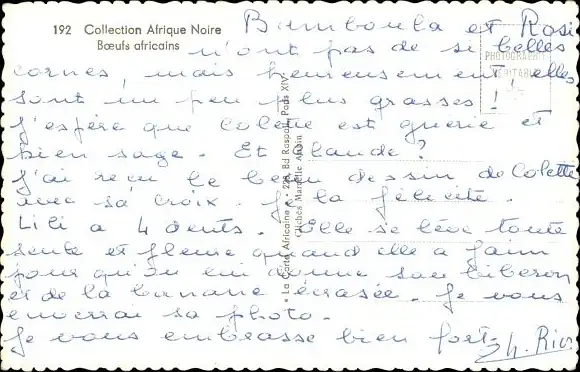 192 Collection Afrique Noire
Bœufs africains
Bamboula et Rosi
n'ont pas de si belles
cornes, mais heureusement, elles
sont un peu plus grasses !
J'espère que Colette est guérie et
bien sage. Et Claude ?
J'ai reçu le beau dessin de Colette
avec sa croix. Je la félicite.
Lili a 4 dents. Elle se lève toute
seule et pleure quand elle a faim
pour qu'on lui donne son biberon
et de la banane écrasée. Je vous
enverrai sa photo.
Je vous embrasse bien fort.
PHOTOGRAPHIE
VÉRITABLE
« La Carte Africaine » - 228, Bd Raspail, Paris XIV
Clichés Marcelle